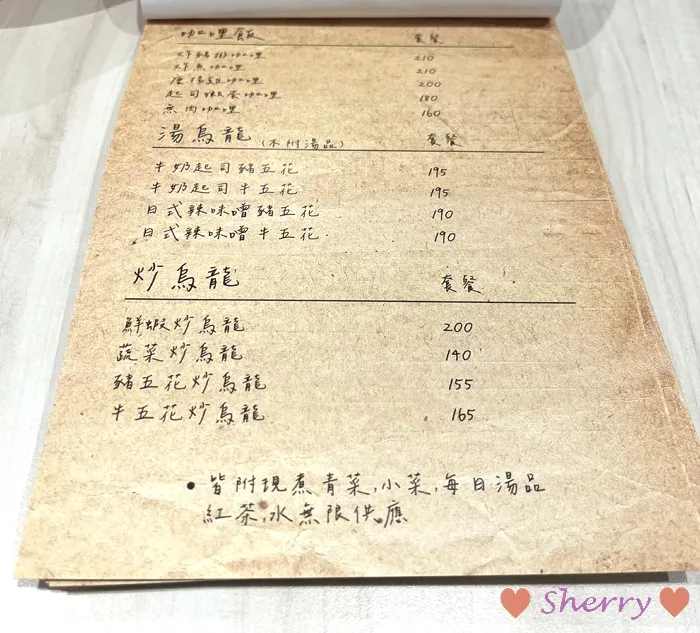 咖哩飯 套餐
炸豬排咖哩 210
炸魚咖哩 210
唐揚雞咖哩 200
起司嫩蛋咖哩 180
無肉咖哩 160
湯烏龍 (不附湯品) 套餐
牛奶起司豬五花 195
牛奶起司牛五花 195
日式辣味噌豬五花 190
日式辣味噌牛五花 190
炒烏龍 套餐
鮮蝦炒烏龍 200
蔬菜炒烏龍 140
豬五花炒烏龍 155
牛五花炒烏龍 165
• 皆附現煮青菜,小菜,每日湯品
紅茶,水無限供應
Sherry